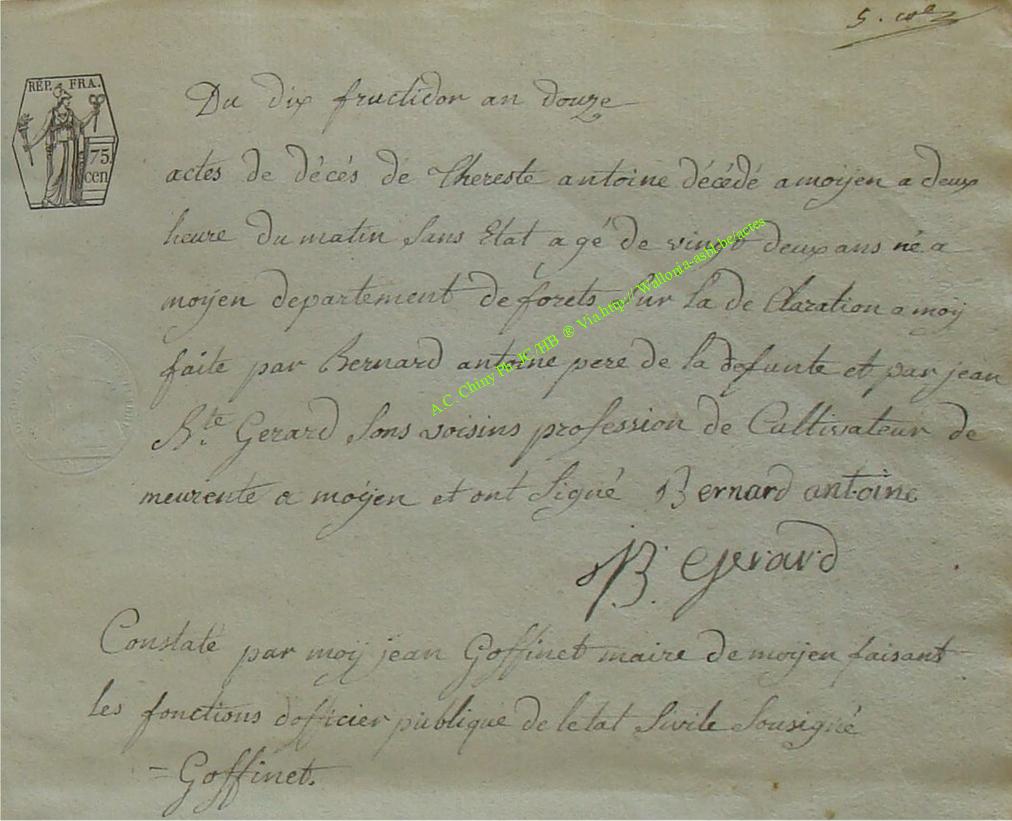 5.
RÉP. FRA.
75.
cen
Du dix fructidor an douze
actes de décés de thereste antoine décédé a moyen a deux
heure du matin sans Etat agé de vingt deux ans né a
moyen departement de forets sur la de Claration a moy
faite par Bernard antoine pere de la defunte et par jean
Bte Gerard sons voisins profession de Cultivateur de
meurente a moyen et ont signé Bernard antoine
JB. Gerard
Constate par moy jean Goffinet maire de moyen faisant
les fonctions dofficier publique de letat sivile sousigné
= Goffinet.
A.C. Chiny Ph. JC THB ® Via http://Wallonia-asbl.be/actes